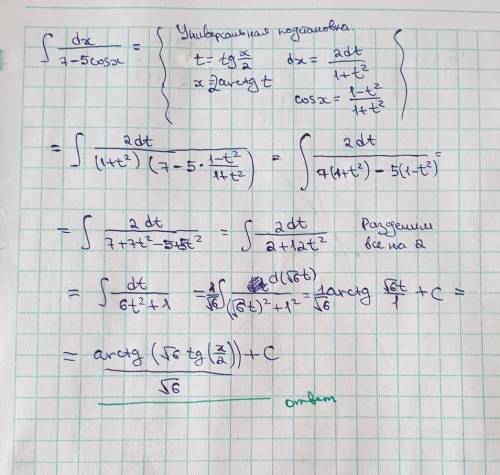 ∫ dx / (7-5cosx) = { Универсальная подстановка:
t = tg x/2   dx = 2dt / (1+t²)
x = 2arctg t   cosx = (1-t²) / (1+t²) }
= ∫ 2dt / ((1+t²) (7-5·(1-t²)/(1+t²))) = ∫ 2dt / (7(1+t²) - 5(1-t²)) =
= ∫ 2dt / (7+7t²-5+5t²) = ∫ 2dt / (2+12t²)   Разделим все на 2
= ∫ dt / (6t²+1) = 1/√6 ∫ d(√6t) / ((√6t)²+1²) = 1/√6 arctg √6t/1 + C =
= arctg (√6 tg(x/2)) / √6 + C
ответ